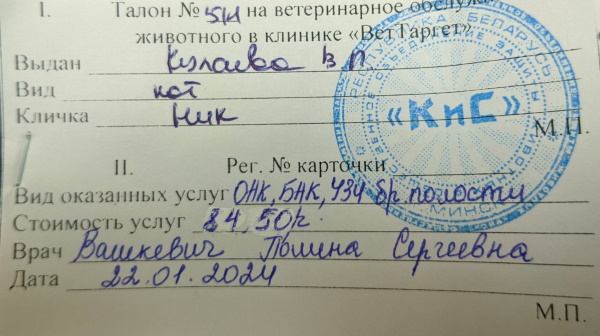 I. Талон № 511 на ветеринарное обслуж
животного в клинике «ВетТаргет»
Выдан В П
Вид кот
Кличка Ник
«КиС»
РЕСПУБЛИКА БЕЛАРУСЬ
МИНСК
М.П.
II. Рег. № карточки
Вид оказанных услуг ОАК, БАК, УЗИ бр. полости
Стоимость услуг 84,50р.
Врач Вашкевич Полина Сергеевна
Дата 22.01.2024
М.П.